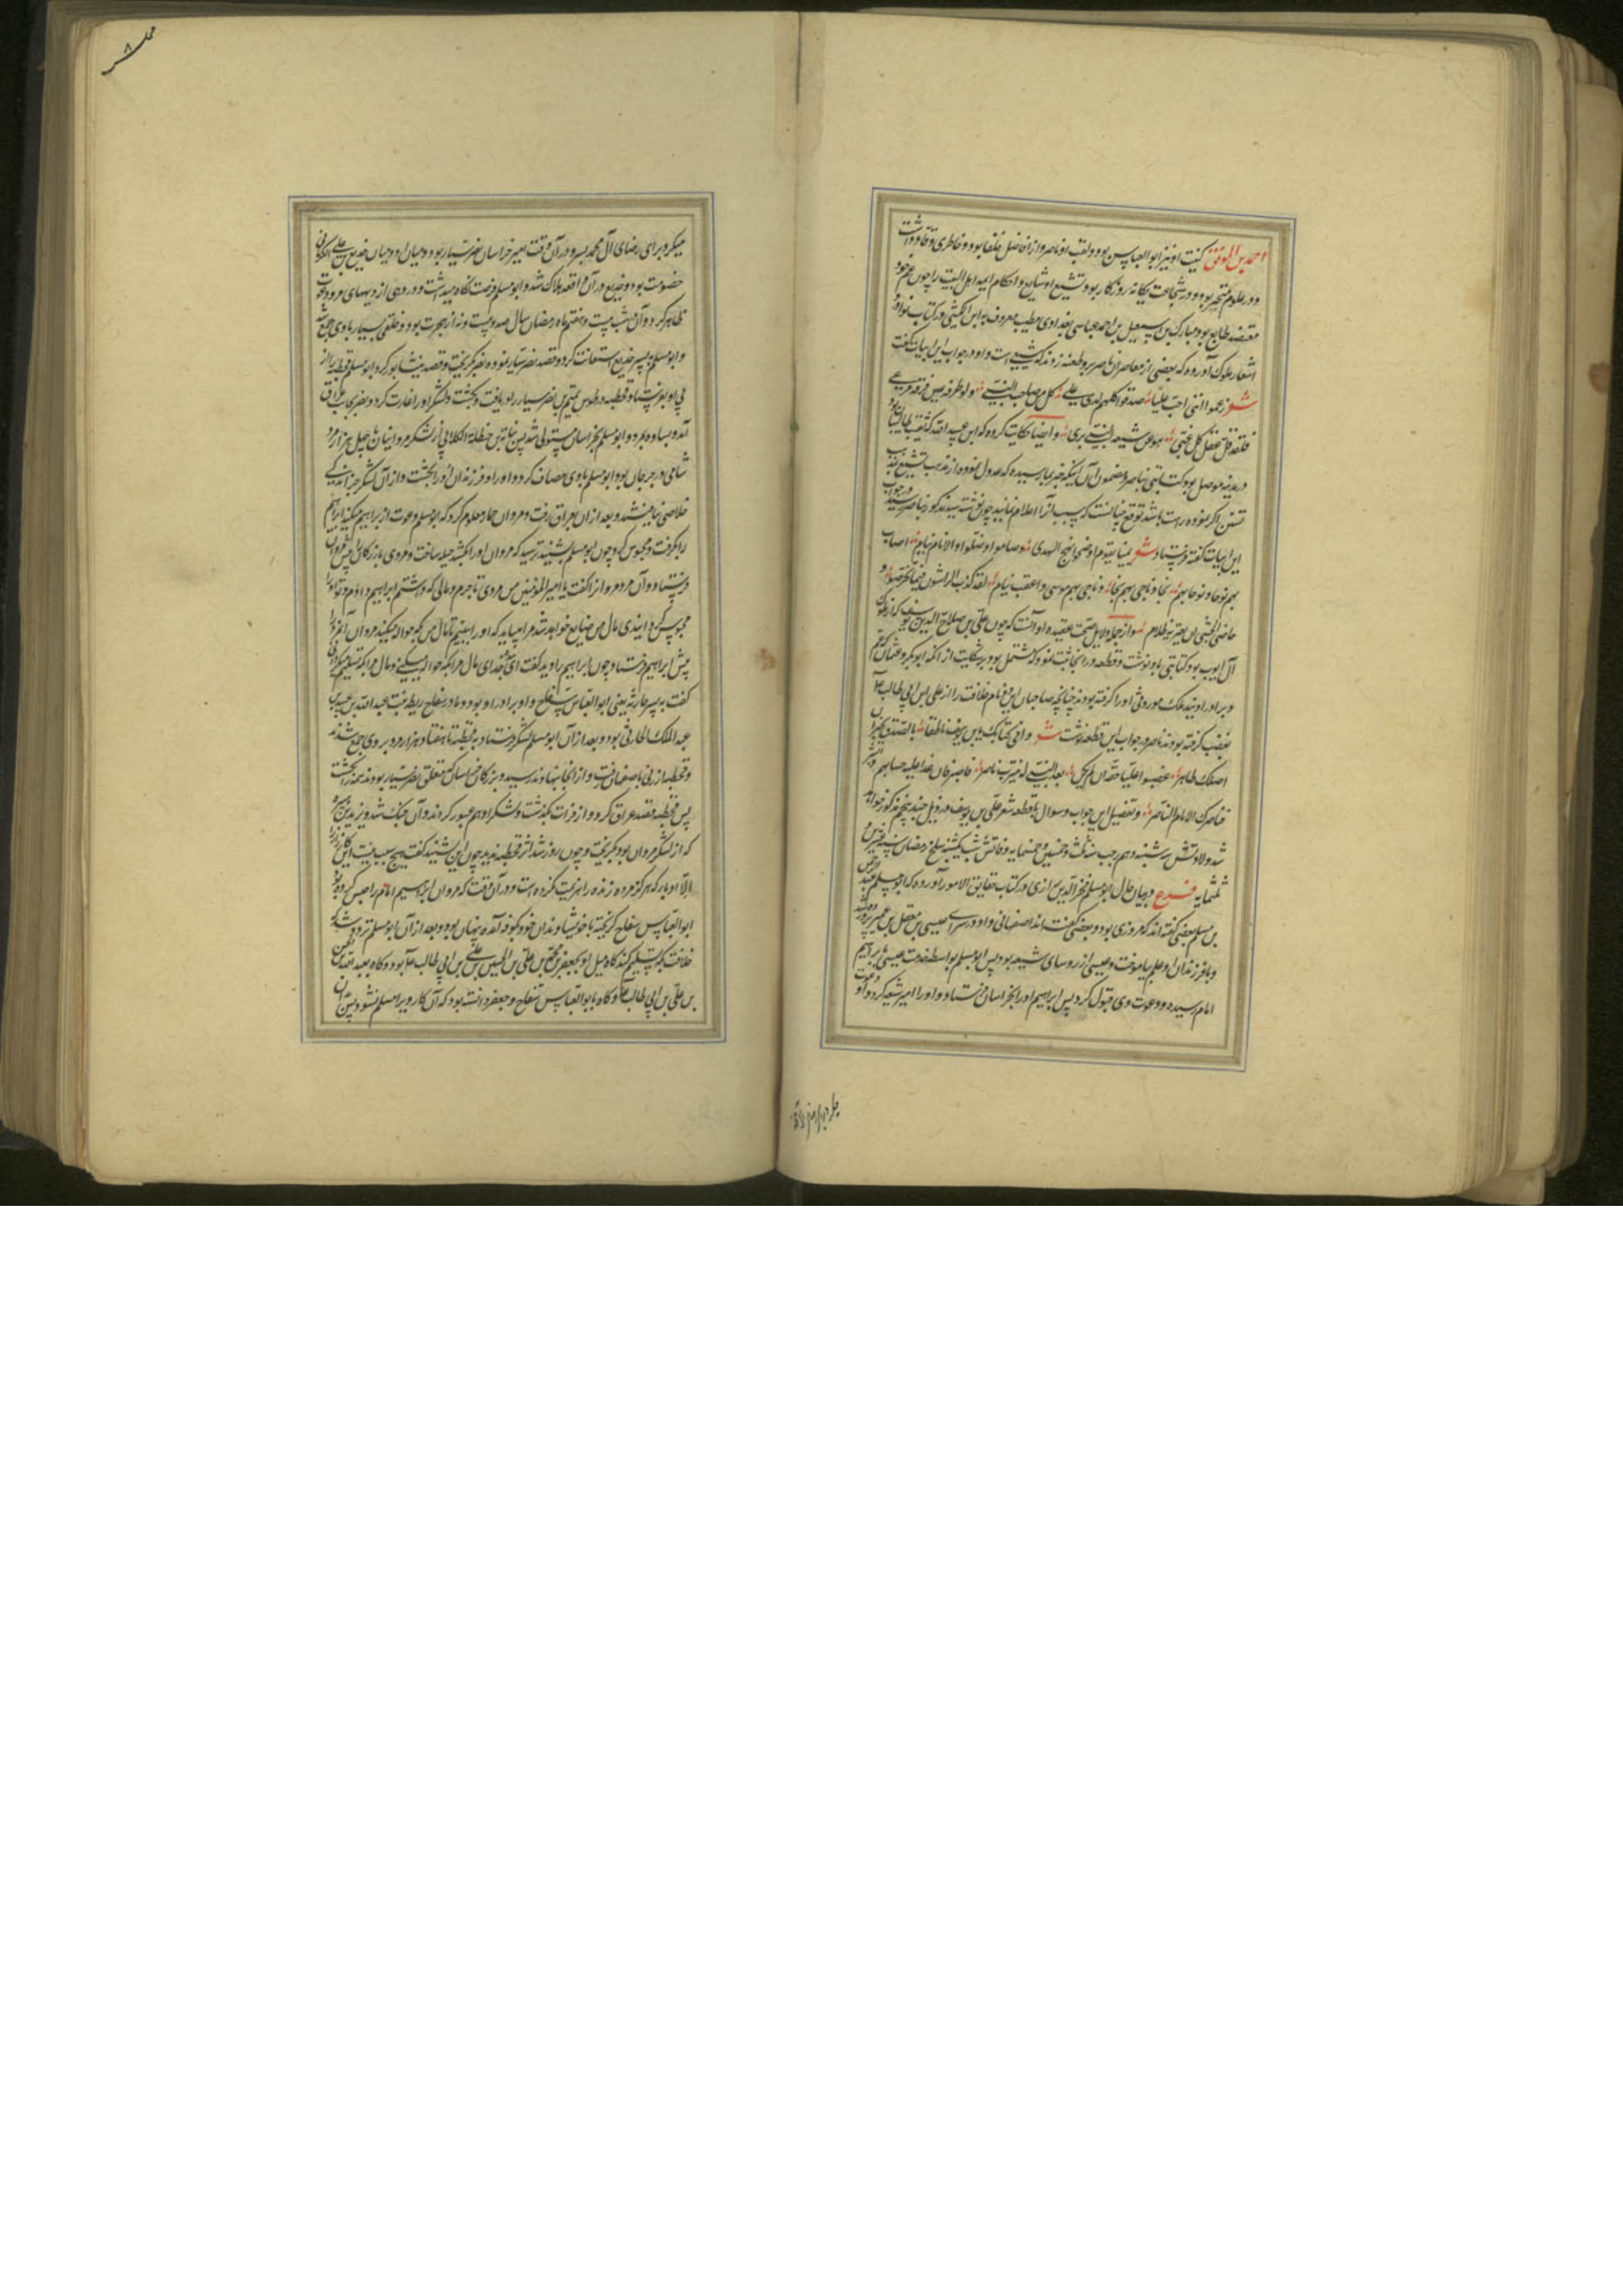 احمد بن الموفق کنیت او نیز ابوالعباس بود و لقب او ناصر و از افاضل خلفا بود و خاطری وقاد داشت
و در علوم متبحر بود و در شجاعت یگانه روزگار بود و تشیع او شایع و احکام ایمه اهل البیت را چون عم خود
معتضد طایع بود و مبارک بن اسمعیل بن احمد عباسی بغدادی خطیب معروف به ابن الکتبی در کتاب نوادر
اشعار ملوک آورده که بعضی از معاصران ناصر بر وی طعنه زدند که شیعی است و او در جواب این ابیات گفت
شعر زعموا اننی احب علیا صدقوا کلهم لدی علی کل من صاحب النبی ولو طرفة عین فرقه مرعی
فلقد قل عقل کل غبی هو من شیعة النبی بری و ایضا حکایت کرده که ابن عبید الله که نقیب طالبیان
در مدینه موصل بود کتابتی بناصر و مضمون آن اینکه خبر بما رسیده که عدول نموده از مذهب تشیع بمذهب
تسنن اگر نموده راست باشد توقع چنانست که سبب آنرا اعلام نمایند چون نوشته سید مذکور بناصر رسید در جواب
این ابیات گفته فرستاد شعر یمینا بقوم اوضحوا نهج الهدی وصاموا وصلوا والانام نیام اصاب
بهم نوحا و نوحا بهم نجا و ناجی بهم موسی و اعقب سام لقد کذب الراشون فیما تخرصوا و
حاشی الضحی ان یعتریه ظلام و از جمله دلایل صحت عقیده او آنست که چون علی بن صلاح الدین یوسف که از ملوک
آل ایوب بود کتابتی باو نوشت و قطعه در آنجا ثبت نموده که مشتمل بود بر شکایت از آنکه ابوبکر و عثمان عم
و برادر او سند ملک موروثی او را گرفته بودند چنانچه صاحبان این دو نام خلافت را از علی بن ابی طالب ع
بغضب گرفته بودند ناصر در جواب این قطعه نوشت شعر وافی کتابک یا بن یوسف ناطقا بالصدق یخبر ان
اصلک طاهر غصبوا علیا حقه اذ لم یکن بعد النبی له بیثرب ناصر فاصبر فان غدا علیه حسابهم وابشر
فناصرک الامام الناصر و تفصیل این جواب و سوال با قطعه شعر علی بن یوسف در ذیل جند پنجم مذکور خواهد
شد ولادتش سه شنبه دهم رجب سنه ثلث و خمسین و خمسمایه وفاتش شب یکشنبه سلخ رمضان سنه عشرین و
ثلثمایه فرع در بیان حال ابومسلم فخر الدین رازی در کتاب حقایق الامور آورده که ابومسلم عبدالرحمن
بن مسلم بعضی گفته اند که مروزی بود و بعضی گفته اند اصفهانی و او در سرای عیسی بن معقل بن عمیر پرورده شد
و با فرزندان او علم بیاموخت و عیسی از روسای شیعه بود پس ابومسلم بواسطه خدمت عیسی بابراهیم
امام رسیده و دعوت وی قبول کرد پس ابراهیم او را بخراسان فرستاد و او را امیر شیعه کرد و او دعوت
میکرد برای رضای آل محمد بسر و در آن وقت امیر خراسان نصر سیار بود و میان او و میان خدیع بن علی الکرمانی
خصومت بود و خدیع در آن واقعه هلاک شد و ابومسلم فرصت نگاه میداشت و در دهی از دیههای مرو دعوت
ظاهر کرد و آن شب بیست و هفتم ماه رمضان سال صد و بیست و نه از هجرت بود و خلقی بسیار با وی جمع شد
و ابومسلم به پسر خدیع استعانت کرد و قصد نصر سیار نموده نصر گریخت و قصد نیشابور کرد ابومسلم قحطبه را از
پی او بفرستاد و قحطبه در طوس تمیم بن نصر سیار را دریافت و بکشت و لشکر او را غارت کرد و نصر بجانب عراق
آمد و بساوه بمرد و ابومسلم بخراسان مستولی شد پس نباته بن حنظلة الکلابی از لشکر مروانیان با چهل هزار مرد
شامی در جرجان بود ابومسلم با وی مصاف کرد و او را و فرزندان او را بکشت و از آن لشکر جز اندکی
خلاصی نیافتند و بعد از آن بعراق رفت و مروان حمار معلوم کرد که ابومسلم دعوت از براهیم میکند ابراهیم
را گرفت و محبوس کرد چون ابومسلم بشنید ترسید که مروان او را بکشد حیله ساخت و مردی بازرگان را پیش مروان
فرستاد و آن مرد مروان را گفت یا امیرالمؤمنین من مردی تاجرم و مالی که داشتم ابراهیم دادم و تو او را
محبوس کرده ایندی مال من ضایع خواهد شد مرا میباید که او را ببینم تا مال من بکه حواله میکند مروان آن مرد را
پیش ابراهیم فرستاد چون ابراهیم را دید گفت ای عدو خدای مال مرا بکه حواله میکنی و مال مرا که تسلیم میکردی
گفت به پسر حارثیه یعنی ابوالعباس سفاح و او برادر او بود و مادر سفاح ریطه بنت عبدالله بن عبید بن
عبدالملک الحارثی بود و بعد از آن ابومسلم لشکر فرستاد به قحطبه تا هفتاد هزار مرد بروی جمع شدند
و قحطبه از ری باصفهان رفت و از آنجا بنهاوند رسید و بزرگان خراسان که متعلق نصر سیار بودند همه را بکشت
پس قحطبه قصد عراق کرد و از فرات بگذشت و لشکر او هم عبور کردند و آن جنگ شد و یزید بن عمر
که از لشکر مروان بود بگریخت و چون روز شد اثر قحطبه ندید چون این بشنید گفت هیچ سبب نیست این کار را
الا ادبار که هرگز مرده زنده را هزیمت نکرده است و در آن وقت که مروان ابراهیم امام را حبس کرده بود
ابوالعباس سفاح گریخته با خویشاوندان خود بکوفه آمده پنهان بود و بعد از آن ابومسلم تردد شد که
خلافت بکه تسلیم کند گاه میل او بجعفر بن محمد بن علی بن الحسین بن علی بن ابی طالب ع بود و گاه بعبدالله بن حسن
بن علی بن ابی طالب ع و گاه بابوالعباس سفاح و جعفر دانسته بود که آن کار و یرا مسلم نشود پس آن